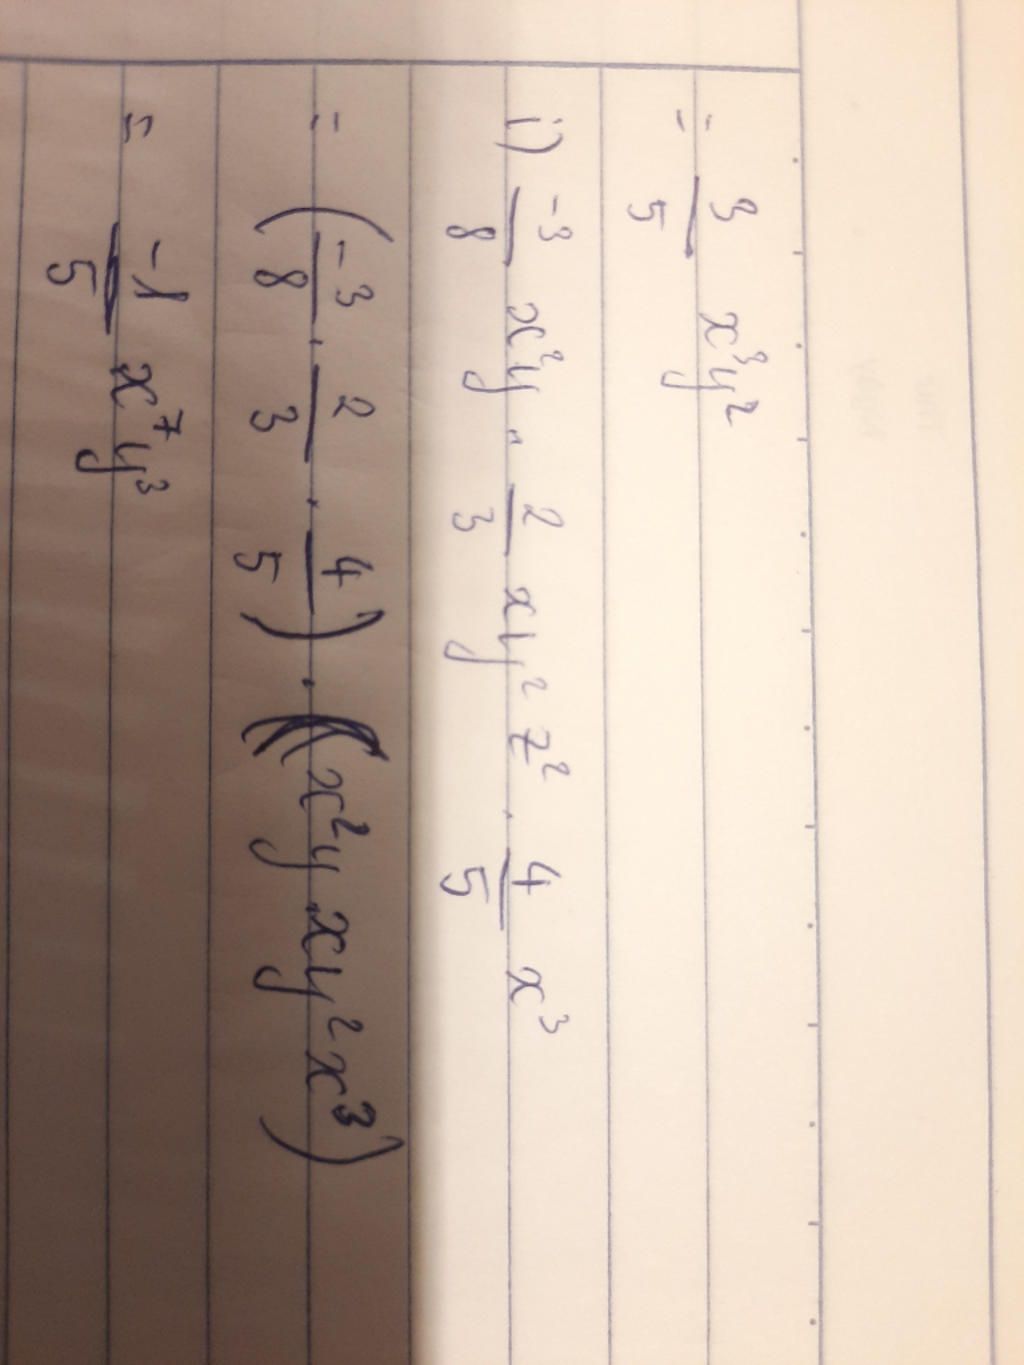 = 3/5 x³y²
i) -3/8 x²y . 2/3 xy² z² . 4/5 x³
= (-3/8 . 2/3 . 4/5) . (x²y . xy² x³)
= -1/5 x⁷y³